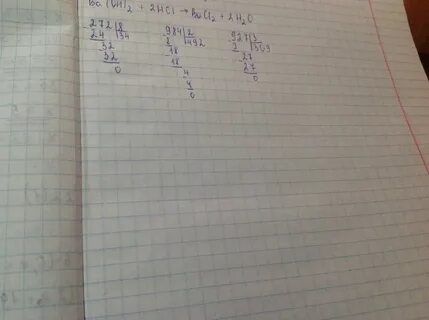 Ba(OH)2 + 2HCl → BaCl2 + 2H2O
272 8 984 2 927 3
24 34 8 492 9 309
32 18 27
32 18 27
0 4 0
4
0